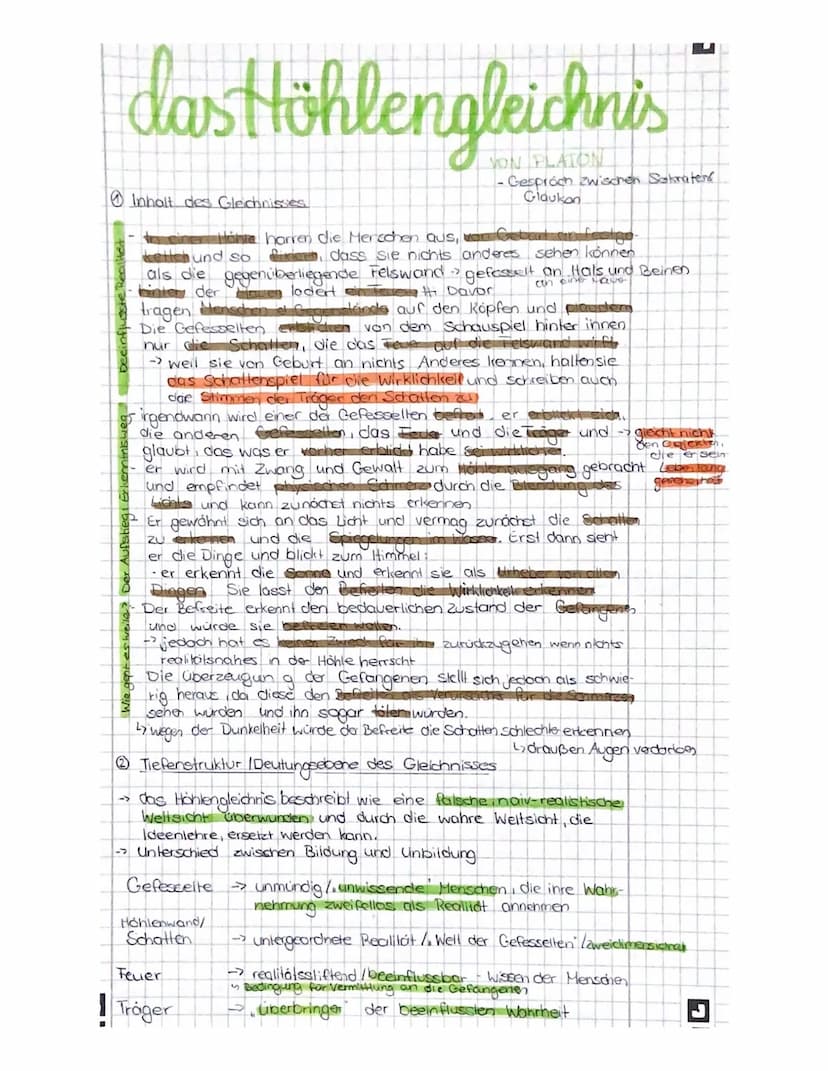 das Höhlengleichnis
VON PLATON
- Gespräch zwischen Sokrates &
Glaukon
① Inhalt des Gleichnisses
beeinflusste Realität
- In einer Höhle harren die Menschen aus, von Geburt an festge-
kettet und so fixiert, dass sie nichts anderes sehen können
als die gegenüberliegende Felswand -> gefesselt an Hals und Beinen
- hinter der Mauer lodert ein Feuer. Davor
an einer Mauer
tragen Menschen Gegenstände auf den Köpfen und plaudern
- Die Gefesselten erblicken von dem Schauspiel hinter ihnen
nur die Schatten, die das Feuer auf die Felswand wirft
-> weil sie von Geburt an nichts Anderes kennen, halten sie
das Schattenspiel für die Wirklichkeit und schreiben auch
die Stimmen der Träger den Schatten zu
Der Aufstieg: Erkenntnisweg
- irgendwann wird einer der Gefesselten befreit, er erblickt sich,
die anderen Gefesselten, das Feuer und die Träger und -> gleicht nicht
den Objekten,
glaubt, das was er vorher erblickt habe sei wirklicher.
die er sein
Leben lang
gesehen hat
- er wird mit Zwang und Gewalt zum Höhlenausgang gebracht
und empfindet physischen Schmerz durch die Blendung des
Lichts und kann zunächst nichts erkennen
- Er gewöhnt sich an das Licht und vermag zunächst die Schatten
zu erkennen und die Spiegelungen im Wasser. Erst dann sieht
er die Dinge und blickt zum Himmel:
· er erkennt die Sonne und erkennt sie als Urheber von allen
Dingen. Sie lässt den Befreiten die Wirklichkeit erkennen
Wie geht es weiter?
- Der Befreite erkennt den bedauerlichen Zustand der Gefangenen
und würde sie befreien wollen.
-> jedoch hat es keinen Zweck für ihn zurückzugehen wenn nichts
realitätsnahes in der Höhle herrscht
Die Überzeugung der Gefangenen stellt sich jedoch als schwie-
rig heraus, da diese den Befreiten als Verursacher für die Schmerzen
sehen würden und ihn sogar töten würden.
↳ wegen der Dunkelheit würde der Befreite die Schatten schlechter erkennen
↳ draußen Augen verdorben
② Tiefenstruktur / Deutungsebene des Gleichnisses
-> das Höhlengleichnis beschreibt wie eine falsche, naiv-realistische
Weltsicht überwunden und durch die wahre Weltsicht, die
Ideenlehre, ersetzt werden kann.
-> Unterschied zwischen Bildung und Unbildung
Gefesselte -> unmündig / "unwissende" Menschen, die ihre Wahr-
nehmung zweifellos als Realität annehmen
Höhlenwand/
Schatten -> untergeordnete Realität / "Welt der Gefesselten" / zweidimensional
Feuer -> realitätsstiftend / beeinflussbar - Wissen der Menschen
↳ Bedingung für Vermittlung an die Gefangenen
Träger -> "überbringer" der beeinflussten Wahrheit